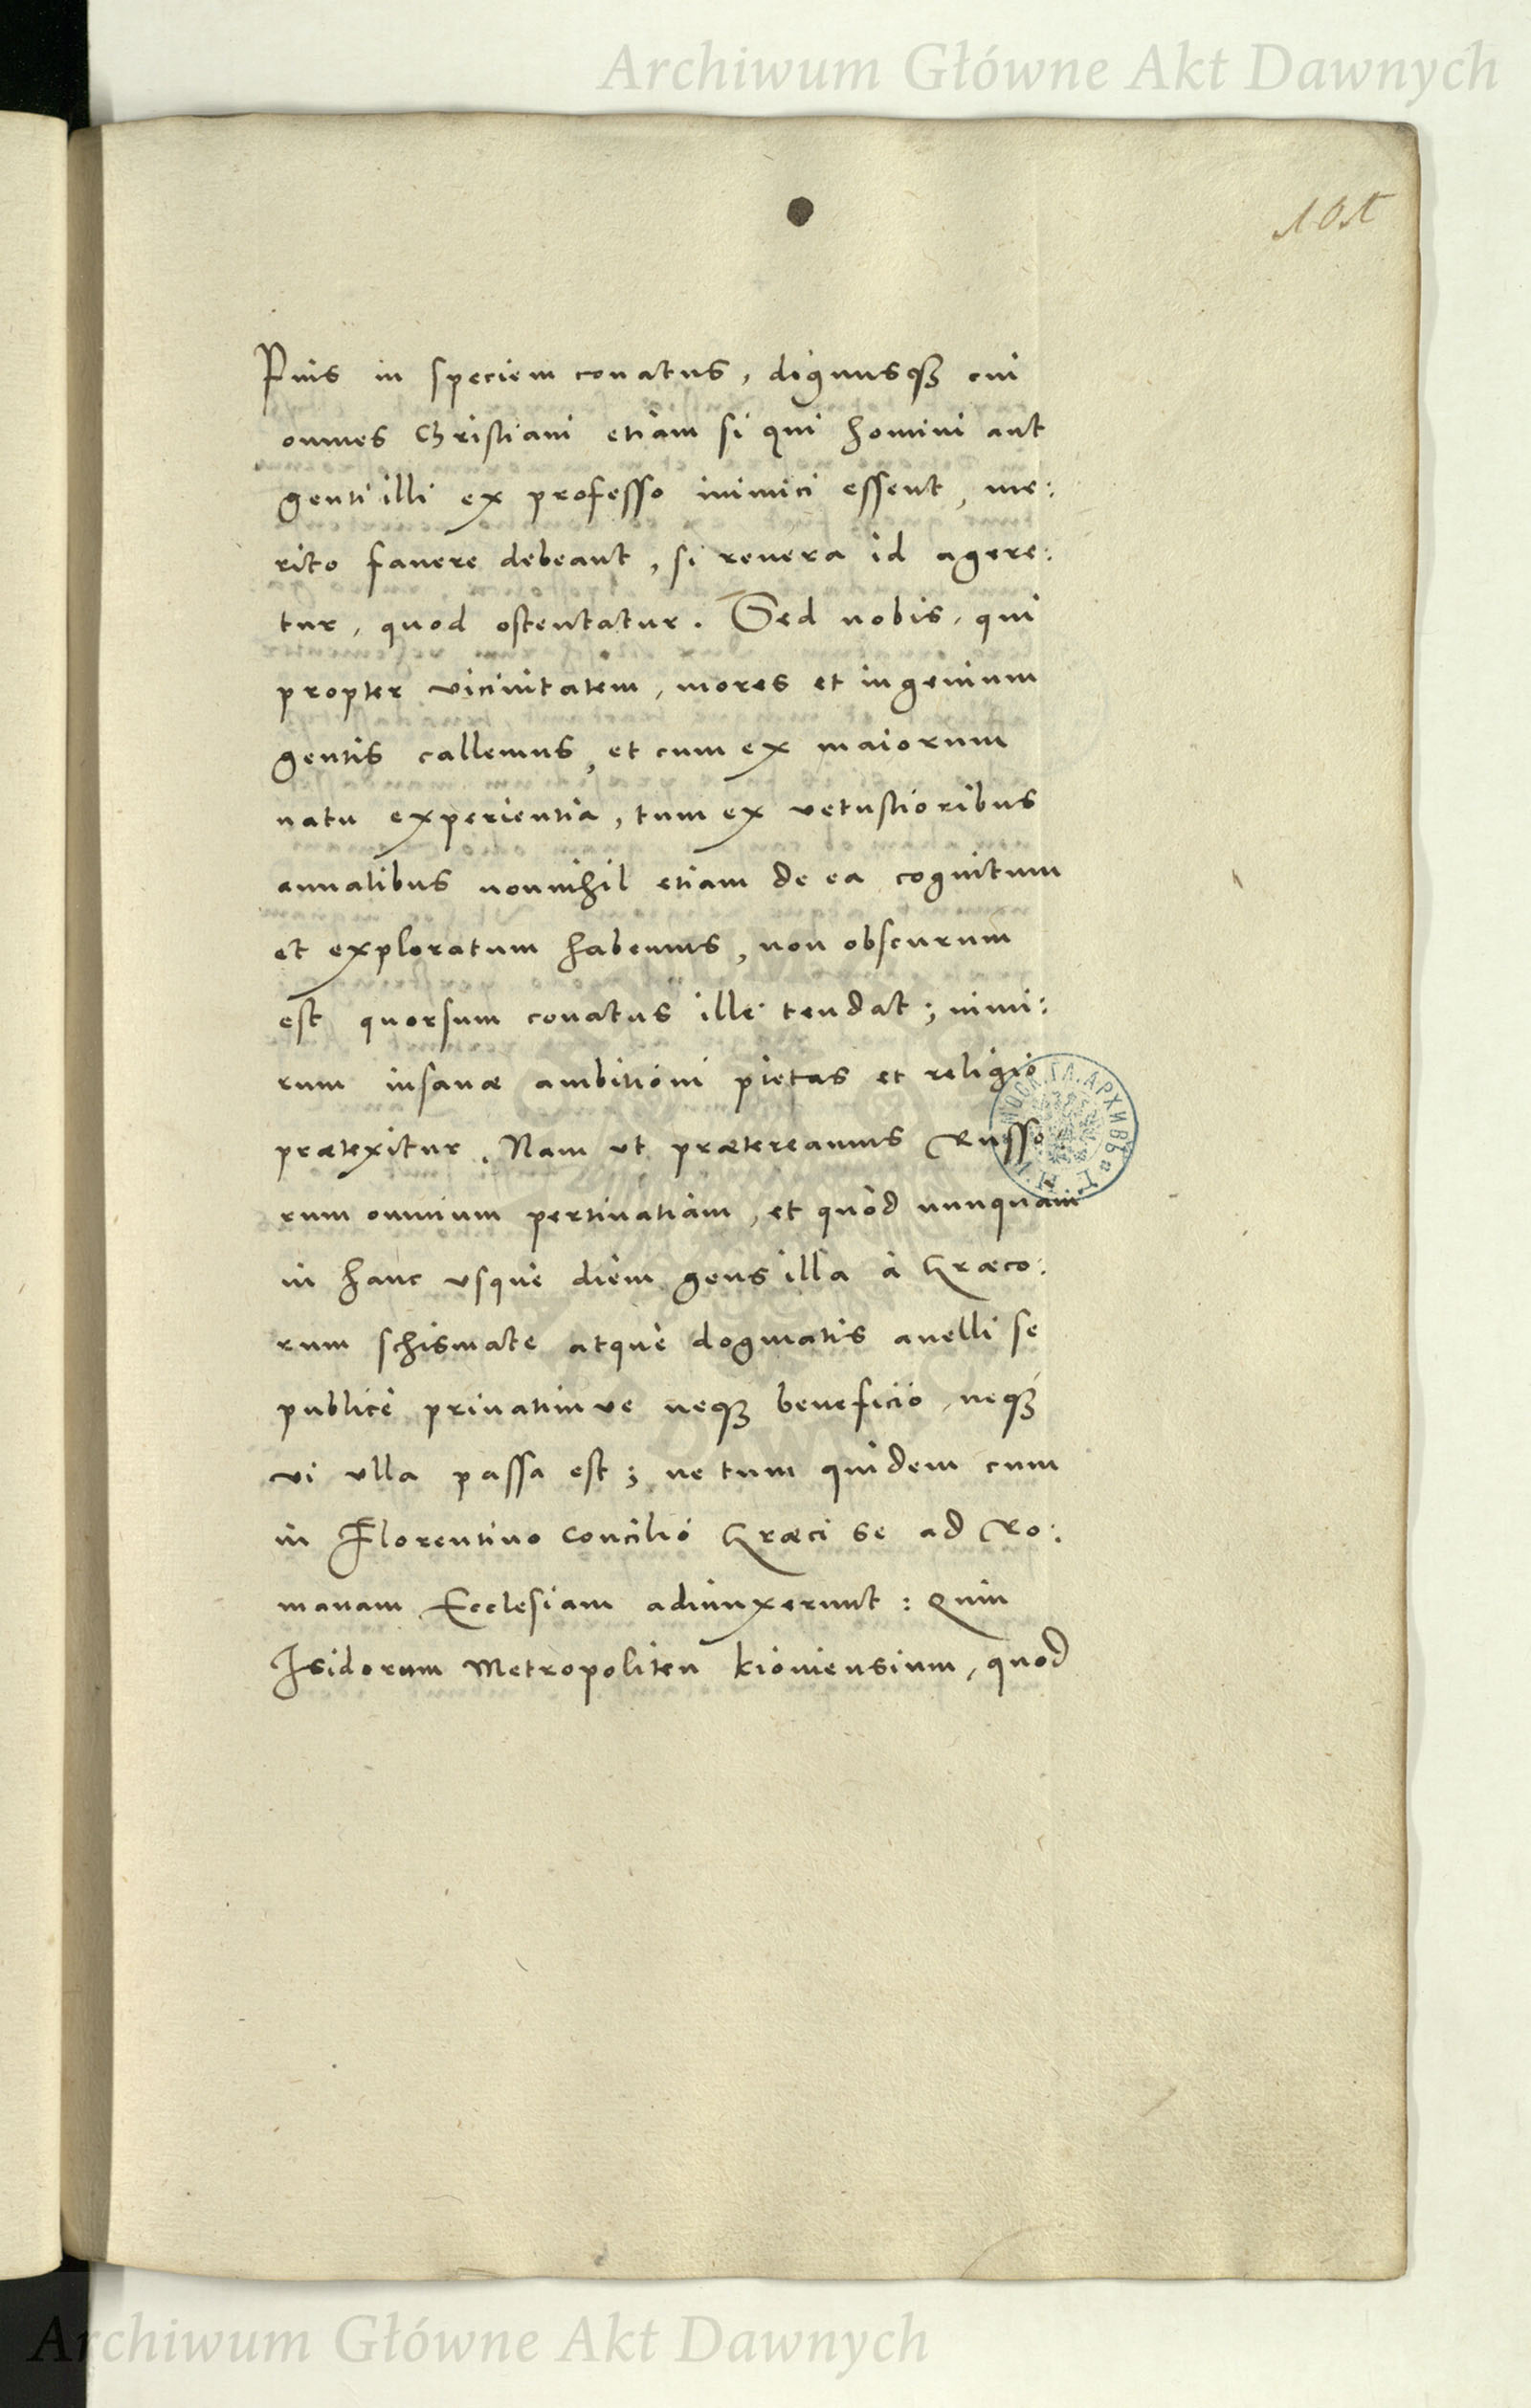 Archiwum Główne Akt Dawnych
101
Pius in speciem conatus, dignusqꝫ cui
omnes Christiani etiam si qui homini aut
genti illi ex professo inimici essent, me:
rito fauere debeant, si reuera id agere:
tur, quod ostentatur. Sed nobis, qui
propter vicinitatem, mores et ingenium
gentis callemus, et cum ex maiorum
natu experientia, tum ex vetustioribus
annalibus nonnihil etiam de ea cognitum
et exploratum habemus, non obscurum
est quorsum conatus ille tendat; nimi:
rum insanæ ambitioni pietas et religio
prætexitur. Nam ut prætereamus Russo
rum omnium pertinatiam, et quòd nunquam
in hanc usque diem gens illa à Græco:
rum schismate atque dogmatis auelli se
publicè priuatimve neqꝫ beneficio, neqꝫ
vi ulla passa est; ne tum quidem cum
in Florentino concilio Græci se ad Ro:
manam Ecclesiam adiunxerunt: Quin
Isidorum Metropoliten kiouiensium, quod
МОСК. ГЛ. АРХИВЪ
Archiwum Główne Akt Dawnych